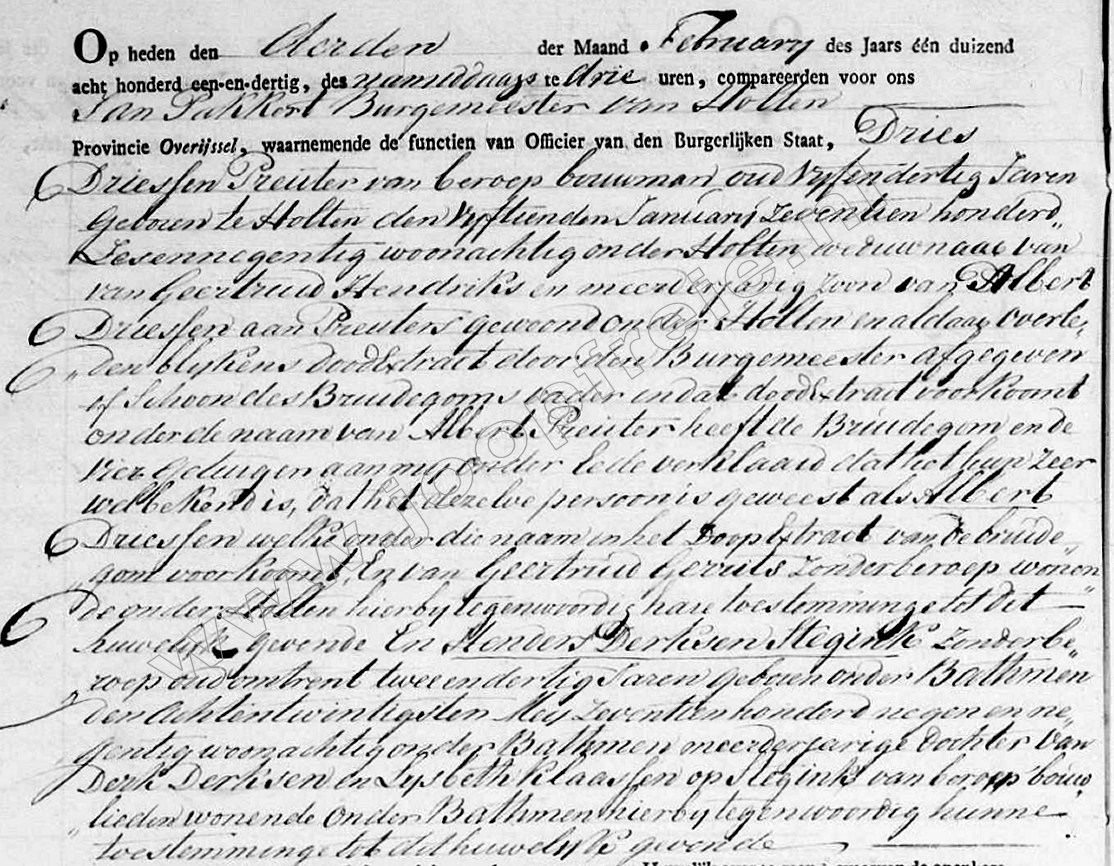 Op heden den Acrden der Maand February des Jaars één duizend
acht honderd een-en-dertig, des namiddags te drie uren, compareerden voor ons
Jan Pakkert Burgemeester van Holten
Provincie Overijssel, waarnemende de functien van Officier van den Burgerlijken Staat, Dries
Driessen Preuter van beroep bouwman oud vyfendertig Jaren
geboren te Holten den Vyftienden January Zeventien honderd
Zesennegentig woonachtig onder Holten weduwnaar van
van Geertruid Hendriks en meerderjarig zoon van Albert
Driessen aan Preuters gewoond onder Holten en aldaar overle„
„den blykens doodExtract door den Burgemeester afgegeven
of Schoon des Bruidegoms vader in dat doodExtract voorkoomt
onder de naam van Albert Preuter heeft de Bruidegom en de
vier getuigen aan my onder Eede verklaard dat het hun zeer
wel bekend is, dat het dezelve persoon is geweest als Albert
Driessen welke onder die naam in het DoopExtract van de bruide„
„gom voorkoomt, En van Geertruid Gerrits Zonder beroep wonen
de onder Holten hierby tegenwoordig hare toestemminge tot dit
huwelyk gevende En Henders Derksen Stegink Zonder be„
roep oud omtrent twee endertig Jaren geboren onder Bathmen
den Achtentwintigsten Mey Zeventien honderd negen en ne„
gentig woonachtig onder Bathmen meerderjarige dochter van
Derk Derksen en Lysbeth Klaassen op Stegink van beroep bouw
„lieden wonende onder Bathmen hierby tegenwoordig hunne
toestemminge tot dit huwelyk gevende
www.joopfreie.nl